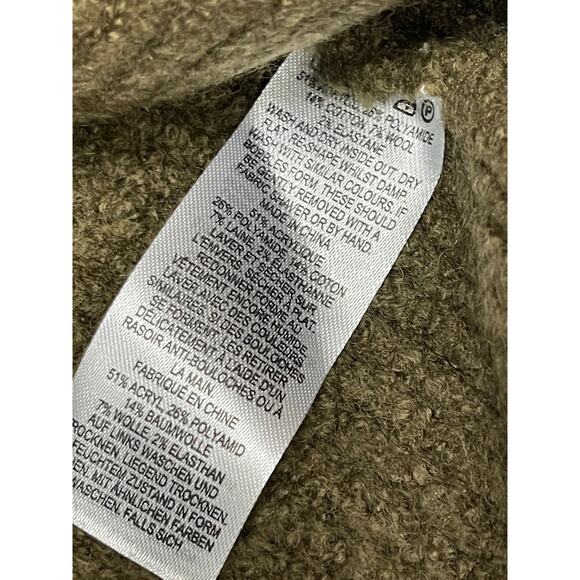 POLYAMIDE
14% COTTON, 7% WOOL
2% ELASTANE
WASH AND DRY INSIDE OUT. DRY
FLAT. RE-SHAPE WHILST DAMP.
WASH WITH SIMILAR COLOURS. IF
FORM, THESE SHOULD
BE GENTLY REMOVED WITH A
FABRIC SHAVER OR BY HAND.
MADE IN CHINA
51% ACRYLIQUE
26% POLYAMIDE, 14% COTON
7% LAINE, 2% ÉLASTHANNE
LAVER ET SÉCHER SUR
L'ENVERS. SÉCHER À PLAT.
REDONNER FORME AU
VÊTEMENT ENCORE HUMIDE.
LAVER AVEC DES COULEURS
SIMILAIRES. SI DES BOULOCHES
SE FORMENT, LES RETIRER
DÉLICATEMENT À L'AIDE D'UN
RASOIR ANTI-BOULOCHES OU À
LA MAIN.
FABRIQUÉ EN CHINE
51% ACRYL, 26% POLYAMID
14% BAUMWOLLE
7% WOLLE, 2% ELASTHAN
AUF LINKS WASCHEN UND
TROCKNEN. LIEGEND TROCKNEN.
FEUCHTEM ZUSTAND IN FORM
MIT ÄHNLICHEN FARBEN
WASCHEN. FALLS SICH